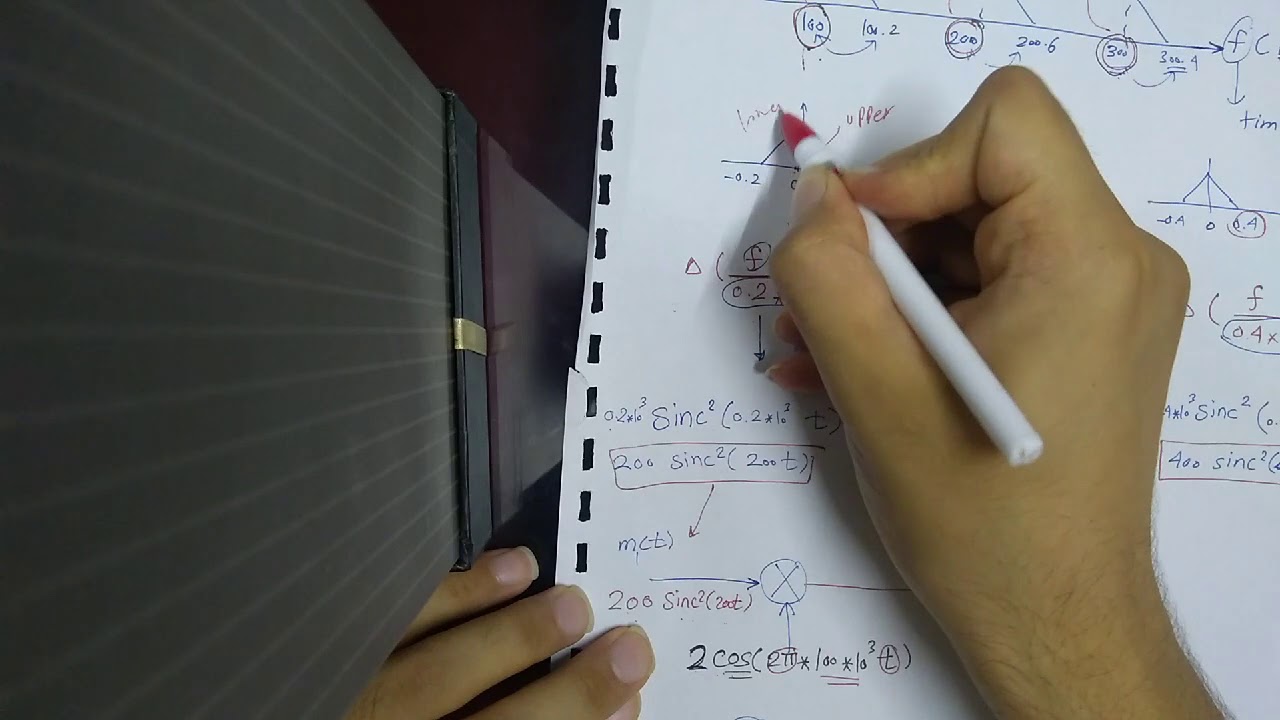 100 100.2 200 200.6 300 300.4 f
tim
lower upper
-0.2 -0.4 0 0.4
Δ ( f / 0.2 *
( f / 0.4 *
0.2*10³ sinc² (0.2*10³ t)
4*10³ sinc² (0.
200 sinc²( 200t)
400 sinc²(
m(t)
200 sinc²(200t)
2 cos(2π*100*10³ t)